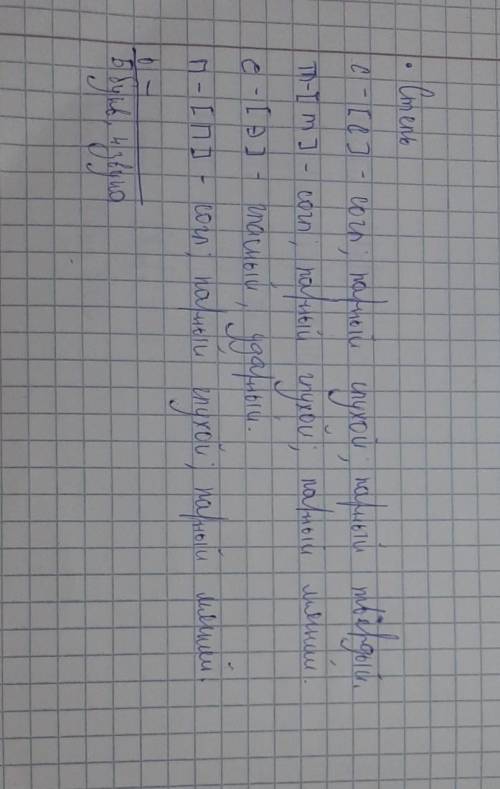 • Степь
с - [с] - согл; парный глухой; парный твёрдый.
т - [т] - согл; парный глухой; парный мягкий.
е - [э] - гласный, ударный.
п - [п] - согл; парный глухой; парный мягкий.
ь -
5 букв, 4 звука